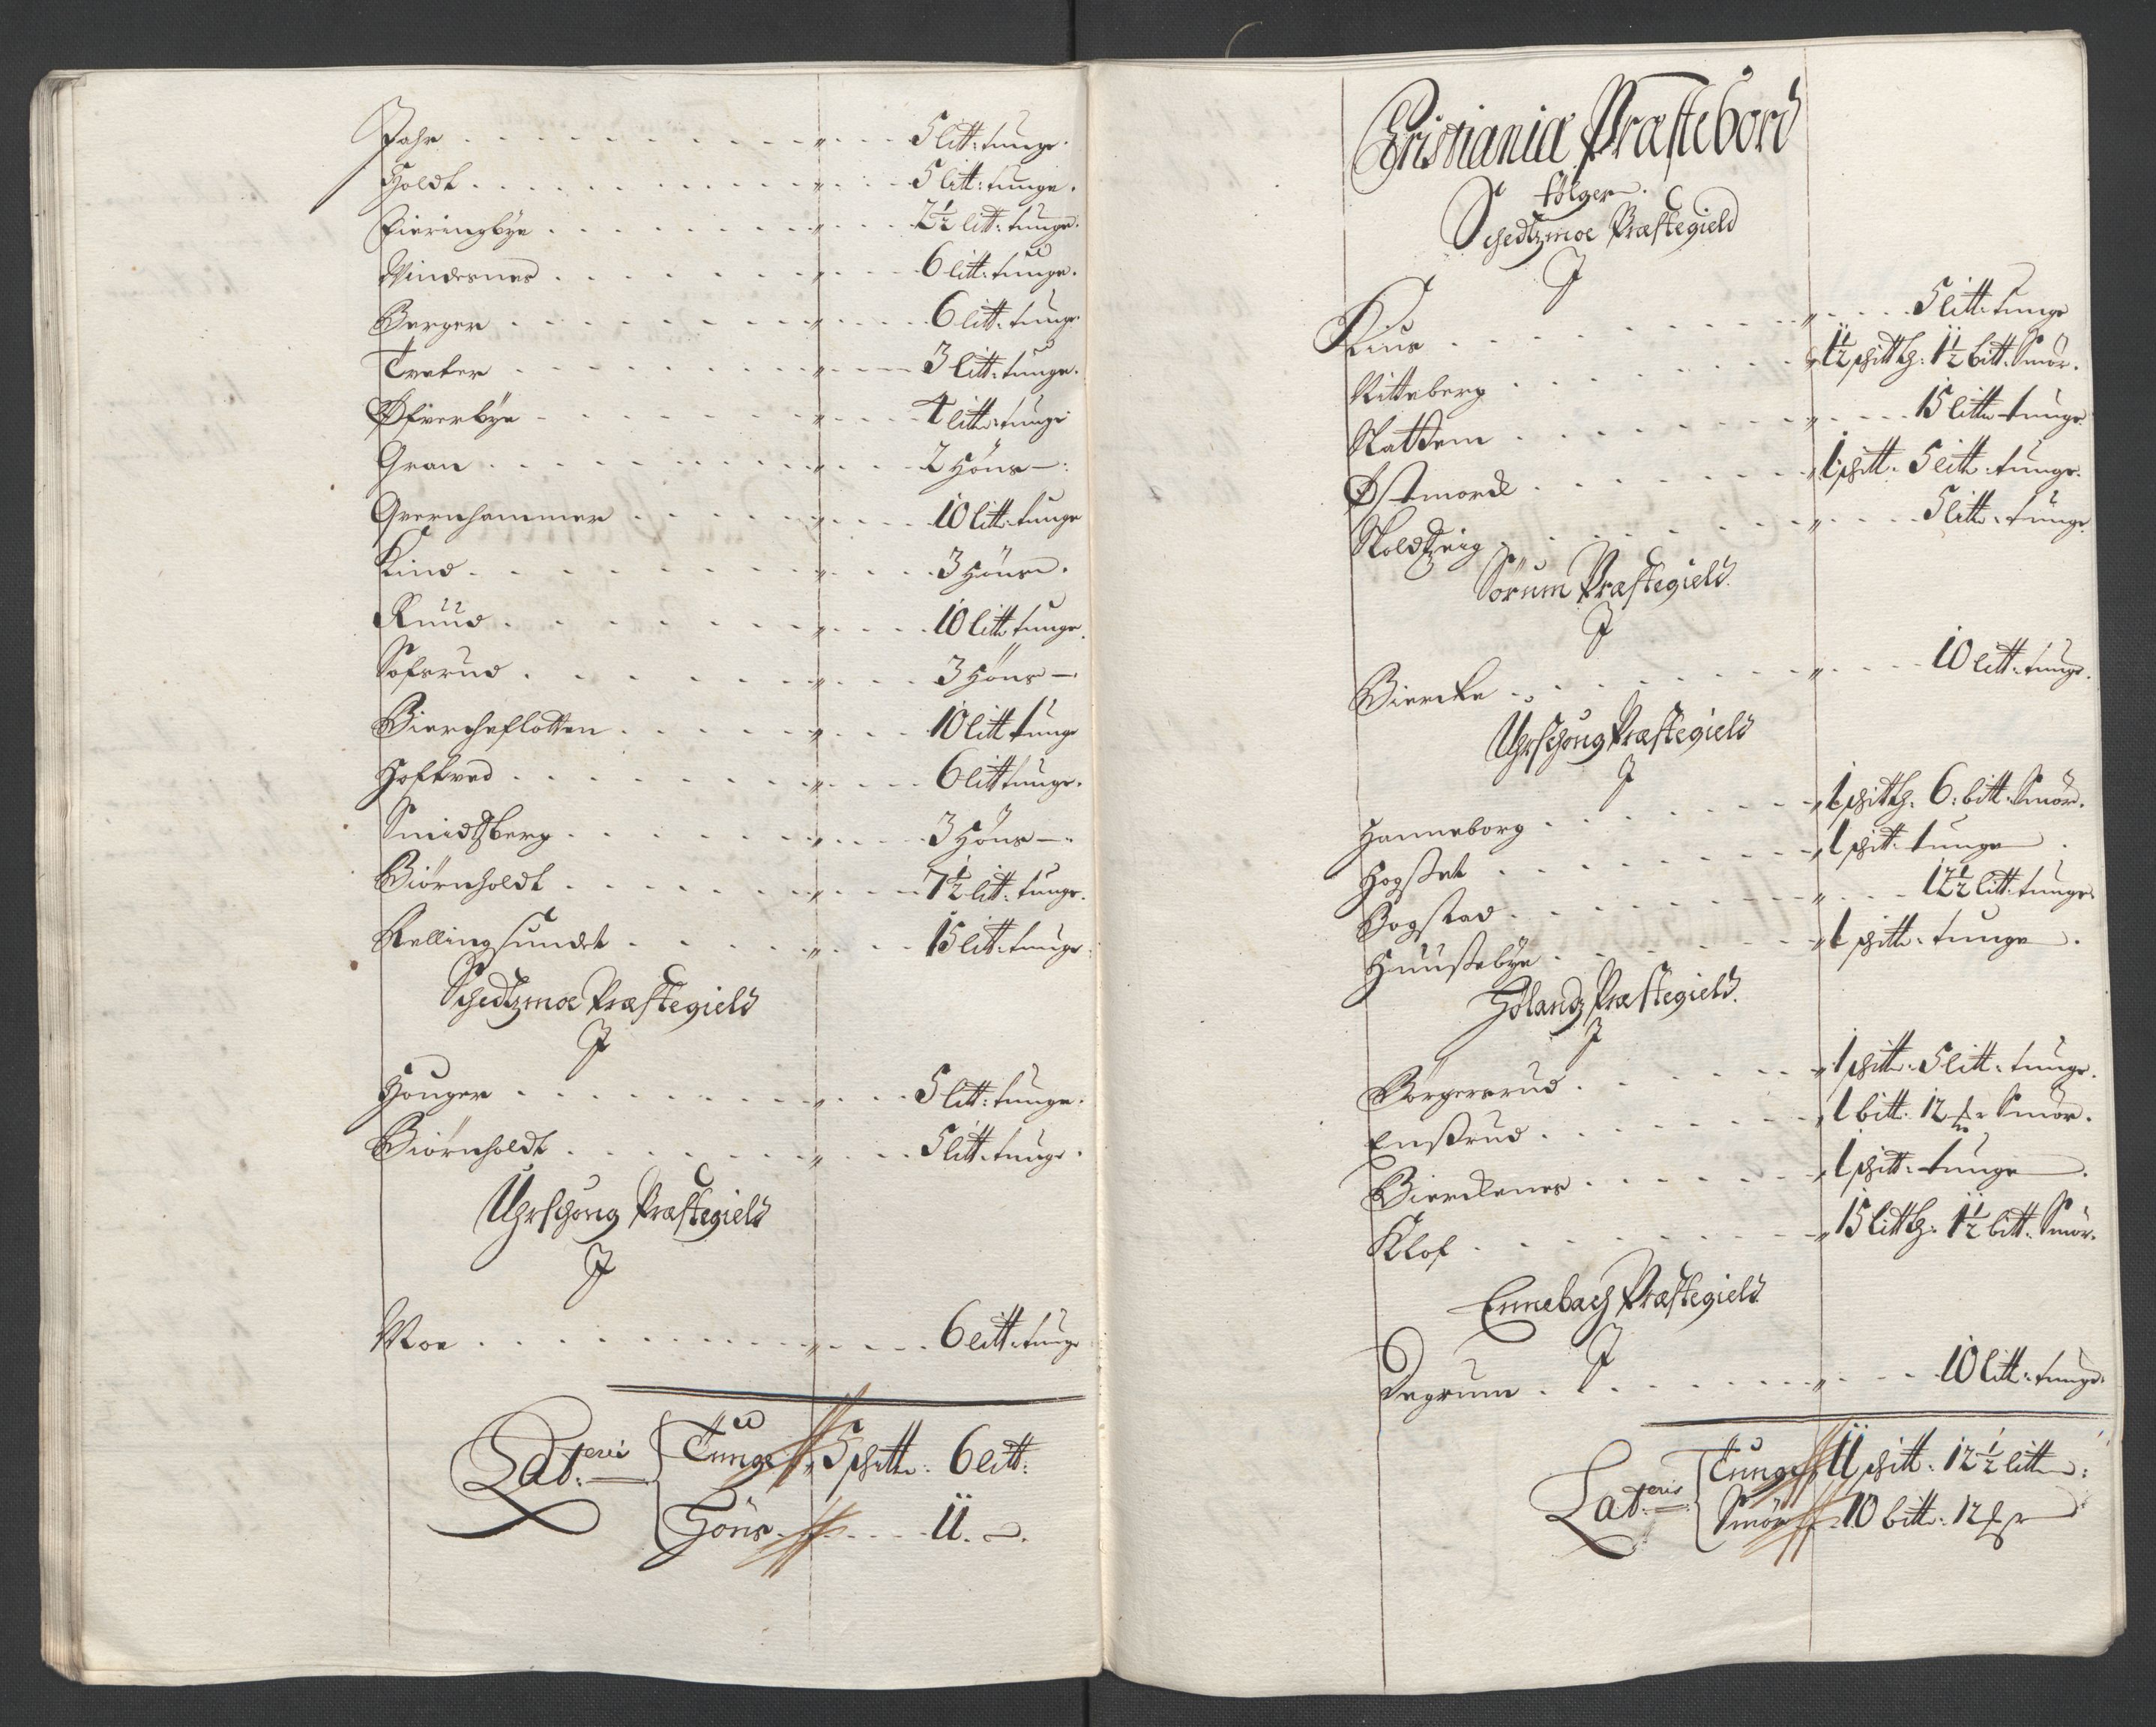 Jahr 5 litt: tunge.
Holdt 5 litt: tunge.
Fieringbye 2½ litt: tunge.
Vindernes 6 litt: tunge.
Berger 6 litt: tunge
Tveter 3 litt: tunge.
Øfverbye 4 litt: tunge
Gran 2 Höns —:
Qvernhammer 10 litt: tunge
Lind 3 Höns.
Ruud 10 litt tunge.
Sofsrud 3 Höns —
Biercheflotten 10 litt tunge
Hoftved 6 litt tunge.
Smidtsberg 3 Höns —.
Biørnholdt 7½ litt: tunge.
Rellingsundet 15 litt: tunge.
Schedtzmoe Præstegield
J
Houger 5 litt: tunge.
Biörnholdt 5 litt: tunge.
Uhrschoug Præstegield
J
Moe 6 litt: tunge
Lateris Tunge 5 schitt: 6 litt:
Höns 11.
Christianiæ Præstebord
følger.
Schedtzmoe Præstegield
J
Kius 5 litt: tunge
Ritteberg 1½ schittH: 1½ bitt: Smör.
Nattem 15 litt: tunge.
Østmorck 1 schitt: 5 litt: tunge.
Skoldtzrig 5 litt: tunge.
Sörum Præstegield.
J
Biercke 10 litt: tunge.
Uhrschoug Præstegield
J
Hanneborg 1 schittH: 6: bitt: Smör.
Hogsset 1 schitt: tunge.
Bogstad 12½ litt: tunge.
Huussebye 1 schitt: tunge.
Hölandz Præstegield.
J
Börgersrud 1 schitt: 5 litt: tunge.
Enssrud 1 bitt: 12 Smör.
Bierckenes 1 schitt: tunge.
Klof 15 littH: 1½ bitt: Smör.
Ennebach Præstegield
J
Degrum 10 litt: tunge.
Lateris Tunge 11 schitt: 12½ litt:
Smör 10 bitt: 12